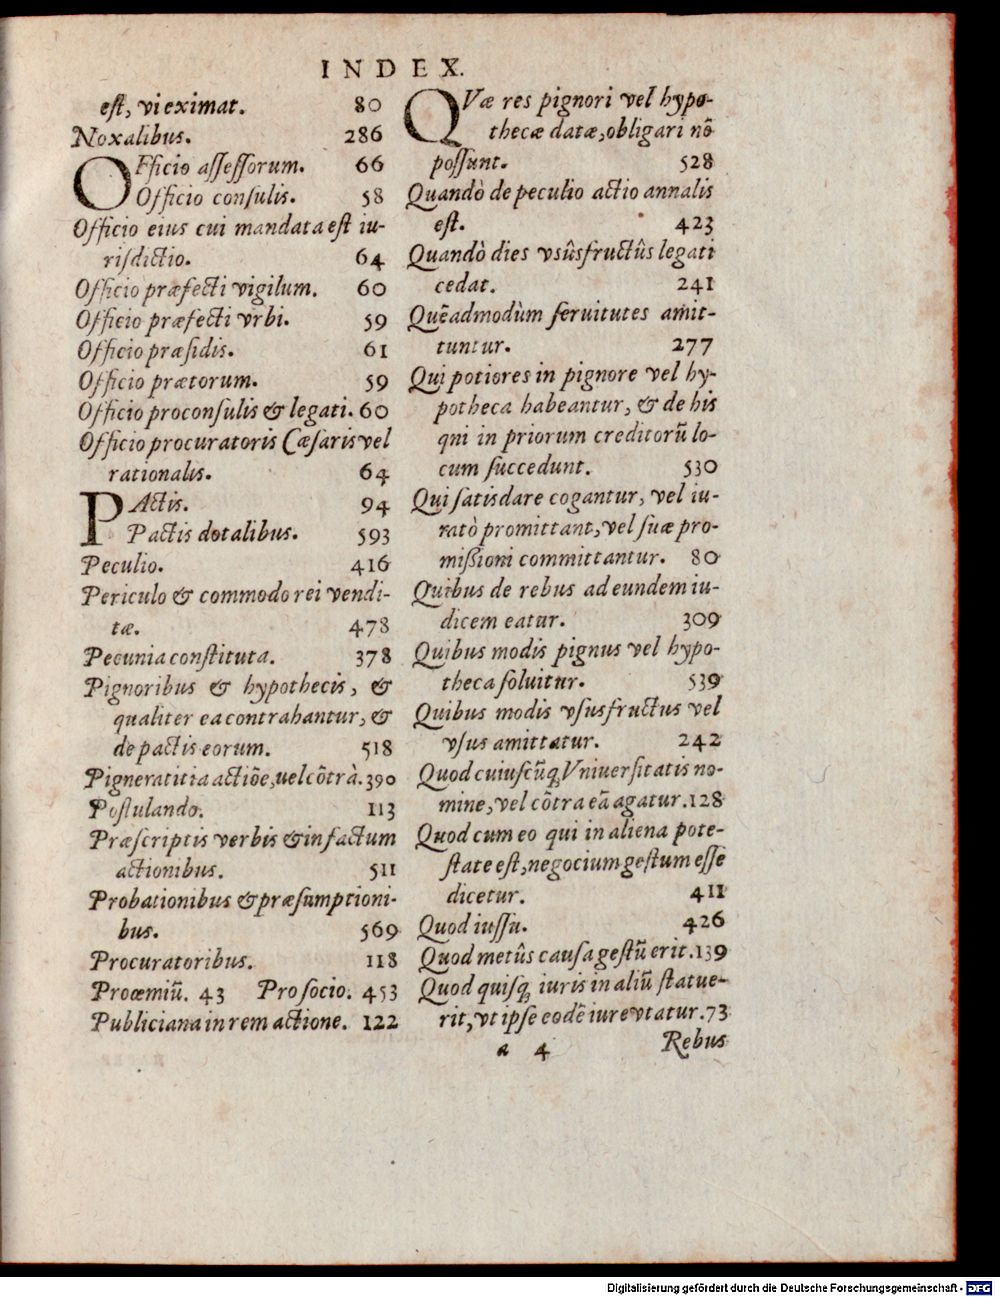 INDEX.
est, vi eximat. 80
Noxalibus. 286
OFficio assessorum. 66
Officio consulis. 58
Officio eius cui mandata est iu-
risdictio. 64
Officio præfecti vigilum. 60
Officio præfecti vrbi. 59
Officio præsidis. 61
Officio prætorum. 59
Officio proconsulis & legati. 60
Officio procuratoris Cæsaris vel
rationalis. 64
PActis. 94
Pactis dotalibus. 593
Peculio. 416
Periculo & commodo rei vendi-
tæ. 478
Pecunia constituta. 378
Pignoribus & hypothecis, &
qualiter ea contrahantur, &
de pactis eorum. 518
Pigneratitia actiõe, uel cõtrà. 390
Postulando. 113
Præscriptis verbis & in factum
actionibus. 511
Probationibus & præsumptioni-
bus. 569
Procuratoribus. 118
Proœmiũ. 43 Pro socio. 453
Publiciana in rem actione. 122
QVæ res pignori vel hypo-
thecæ datæ, obligari nõ
possunt. 528
Quandò de peculio actio annalis
est. 423
Quandò dies vsûsfructûs legati
cedat. 241
Quẽadmodùm seruitutes amit-
tuntur. 277
Qui potiores in pignore vel hy-
potheca habeantur, & de his
qni in priorum creditorũ lo-
cum succedunt. 530
Qui satisdare cogantur, vel iu-
ratò promittant, vel suæ pro-
mißioni committantur. 80
Quibus de rebus ad eundem iu-
dicem eatur. 309
Quibus modis pignus vel hypo-
theca soluitur. 539
Quibus modis vsusfructus vel
vsus amittatur. 242
Quod cuiuscũq; Vniuersitatis no-
mine, vel cõtra eã agatur. 128
Quod cum eo qui in aliena pote-
state est, negocium gestum esse
dicetur. 411
Quod iussu. 426
Quod metûs causa gestũ erit. 139
Quod quisq; iuris in aliũ statue-
rit, vt ipse eodẽ iure vtatur. 73
a 4 Rebus
Digitalisierung gefördert durch die Deutsche Forschungsgemeinschaft - DFG